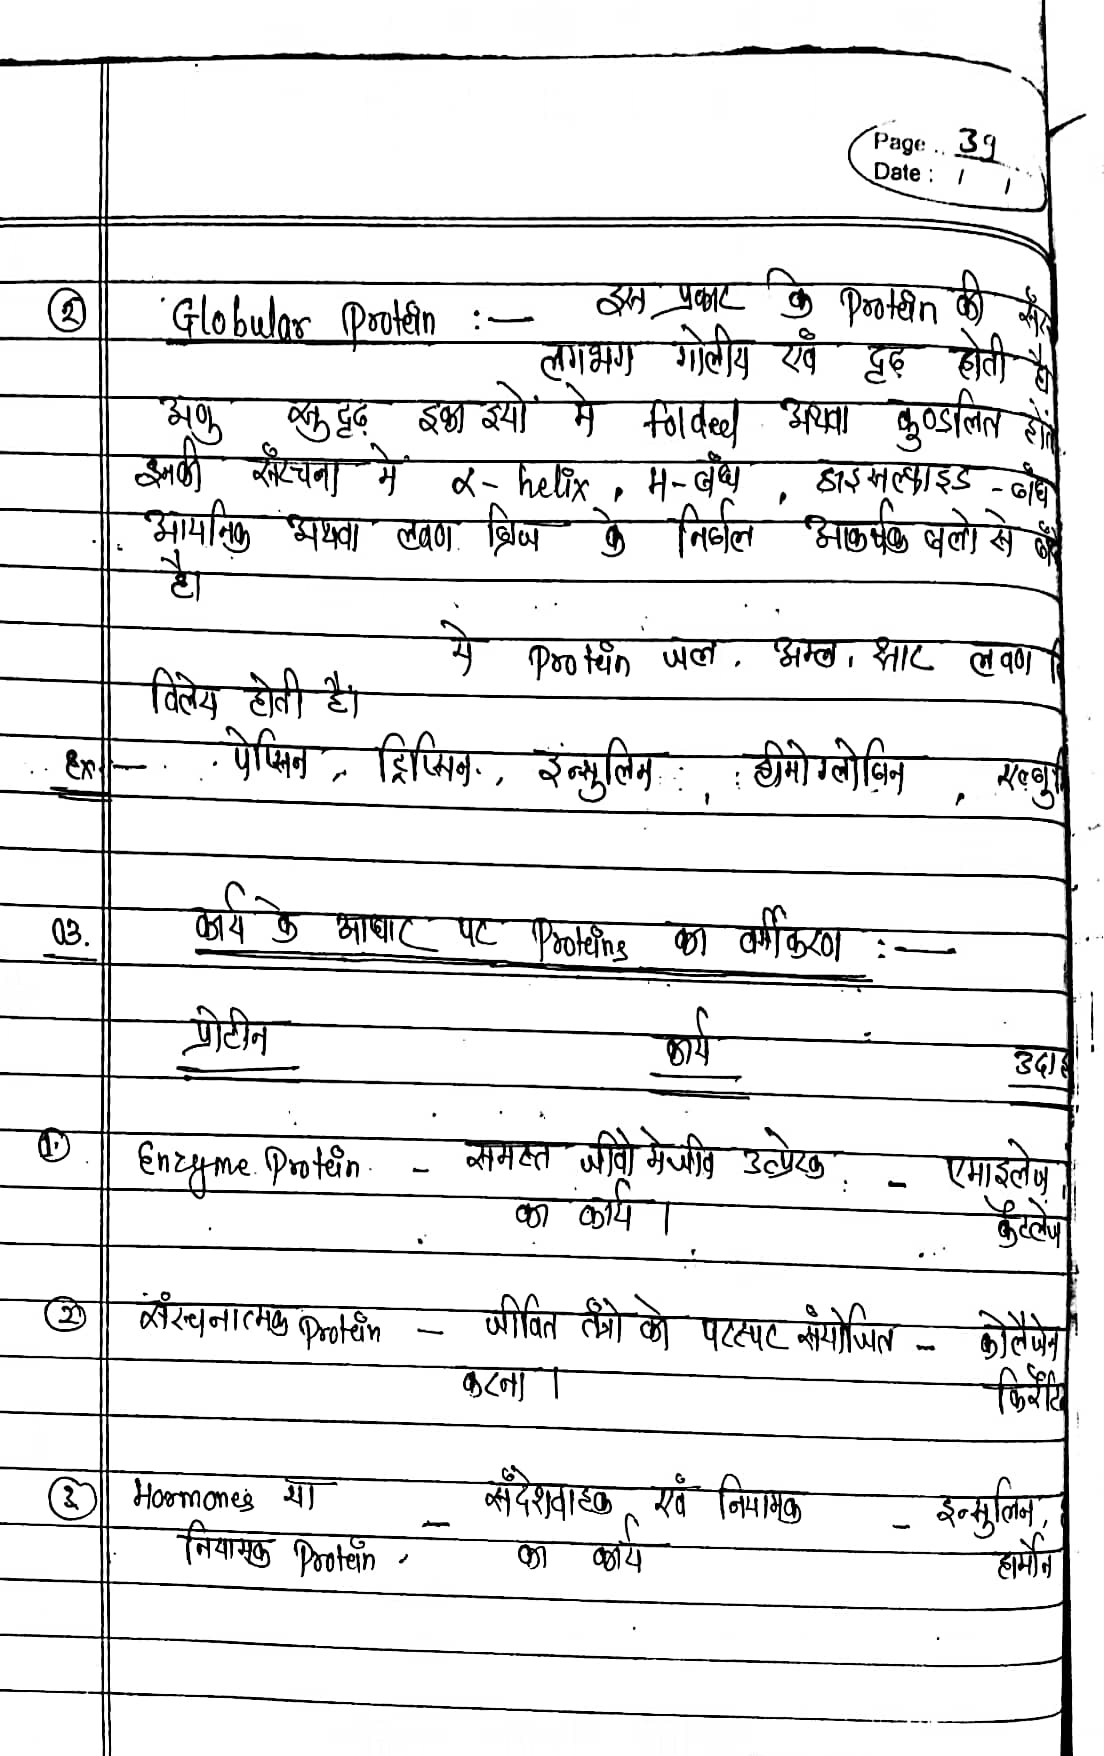 Page .. 39
Date : / /
② Globular Protein :— इस प्रकार कि Protein की
लगभग गोलीय एवं दृढ़ होती है
अणु सुदृढ़ इकाइयों में folded अथवा कुण्डलित होते
इनकी संरचना में α- helix, H-बंध, डाइसल्फाइड -बंध
आयनिक अथवा लवण ब्रिज के निर्बल आकर्षक बलो से बंधे
है।
ये Protein जल, अम्ल, क्षार लवण
विलेय होती है।
Ex:— पेप्सिन, ट्रिप्सिन, इन्सुलिन, हीमोग्लोबिन,
03. कार्य के आधार पर Proteins का वर्गीकरण :—
प्रोटीन कार्य उदाह
①. Enzyme Protein - समस्त जीवो मे जीव उत्प्रेरक - एमाइलेज,
का कार्य । कैटलेज
② संरचनात्मक Protein - जीवित तंत्रो को परस्पर संयोजित - कोलैजेन
करना । किरैटि
③ Hormones या - संदेशवाहक एवं नियामक - इन्सुलिन,
नियामक Protein का कार्य हार्मोन